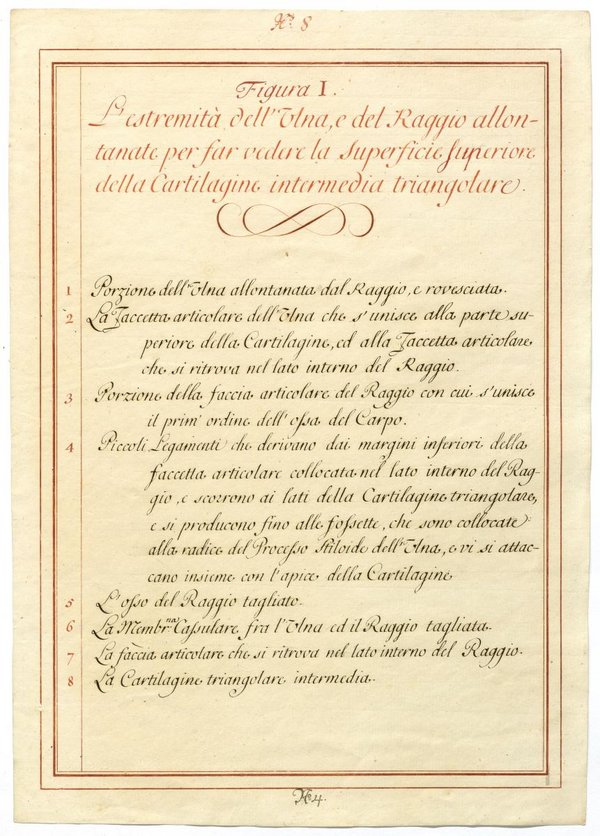 No. 8
Figura I.
L'estremità dell'Ulna, e del Raggio allon-
tanate per far vedere la Superficie superiore
della Cartilagine intermedia triangolare.
1 Porzione dell'Ulna allontanata dal Raggio, e rovesciata.
2 La Faccetta articolare dell'Ulna che s'unisce alla parte su-
periore della Cartilagine, ed alla Faccetta articolare
che si ritrova nel lato interno del Raggio.
3 Porzione della faccia articolare del Raggio con cui s'unisce
il prim' ordine dell'ossa del Carpo.
4 Piccoli Legamenti che derivano dai margini inferiori della
faccetta articolare collocata nel lato interno del Rag-
gio, e scorrono ai lati della Cartilagine triangolare,
e si producono fino alle fossette, che sono collocate
alla radice del Processo stiloide dell'Ulna, e vi si attac-
cano insieme con l'apice della Cartilagine
5 L'osso del Raggio tagliato.
6 La Membrna Cassulare fra l'Ulna ed il Raggio tagliata.
7 La faccia articolare che si ritrova nel lato interno del Raggio.
8 La Cartilagine triangolare intermedia.
No. 4.